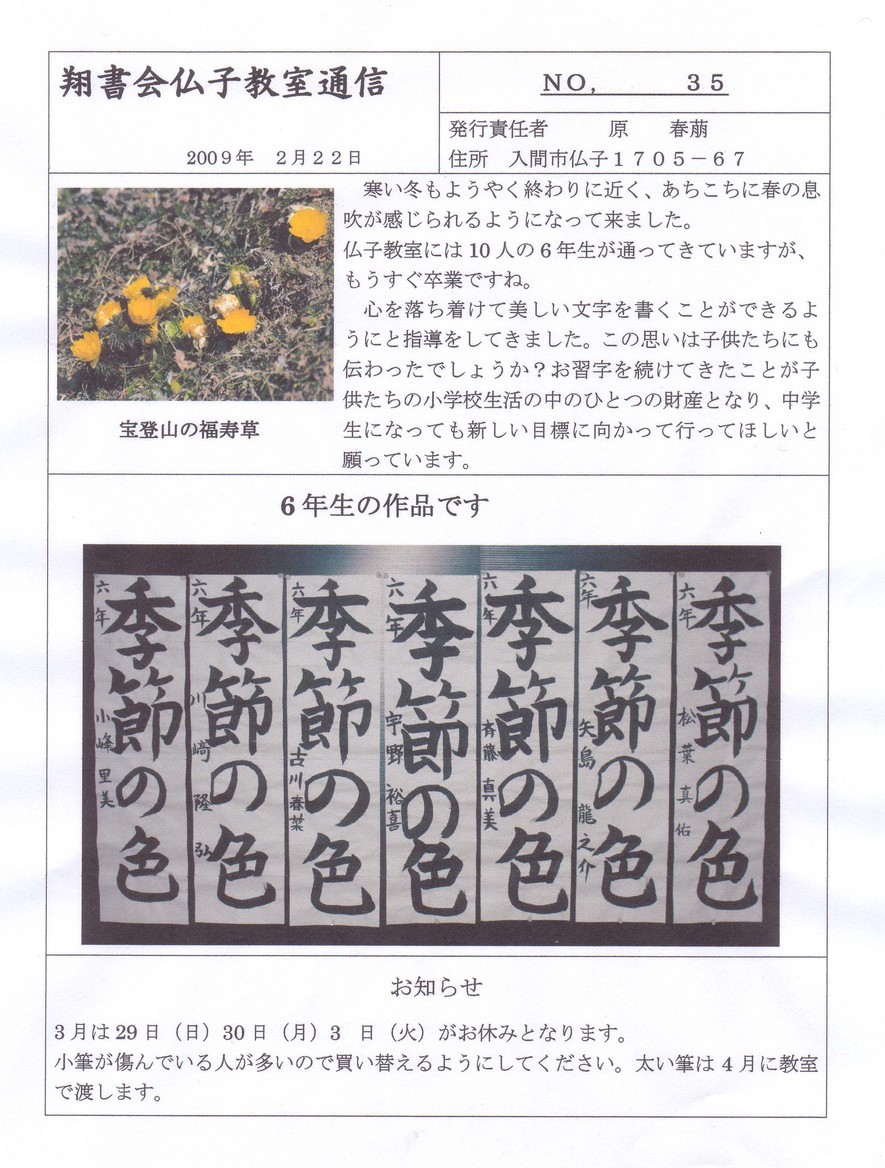 翔書会仏子教室通信
2009年 2月22日
NO, 35
発行責任者 原 春萠
住所 入間市仏子1705-67
寒い冬もようやく終わりに近く、あちこちに春の息
吹が感じられるようになって来ました。
仏子教室には10人の6年生が通ってきていますが、
もうすぐ卒業ですね。
心を落ち着けて美しい文字を書くことができるよ
うにと指導をしてきました。この思いは子供たちにも
伝わったでしょうか?お習字を続けてきたことが子
供たちの小学校生活の中のひとつの財産となり、中学
生になっても新しい目標に向かって行ってほしいと
願っています。
宝登山の福寿草
6年生の作品です
季節の色
六年 小峰里美
季節の色
六年 川﨑隆弘
季節の色
六年 古川春菜
季節の色
六年 宇野裕喜
季節の色
六年 斉藤真美
季節の色
六年 矢島龍之介
季節の色
六年 松葉真佑
お知らせ
3月は29日(日)30日(月)3 日(火)がお休みとなります。
小筆が傷んでいる人が多いので買い替えるようにしてください。太い筆は4月に教室
で渡します。